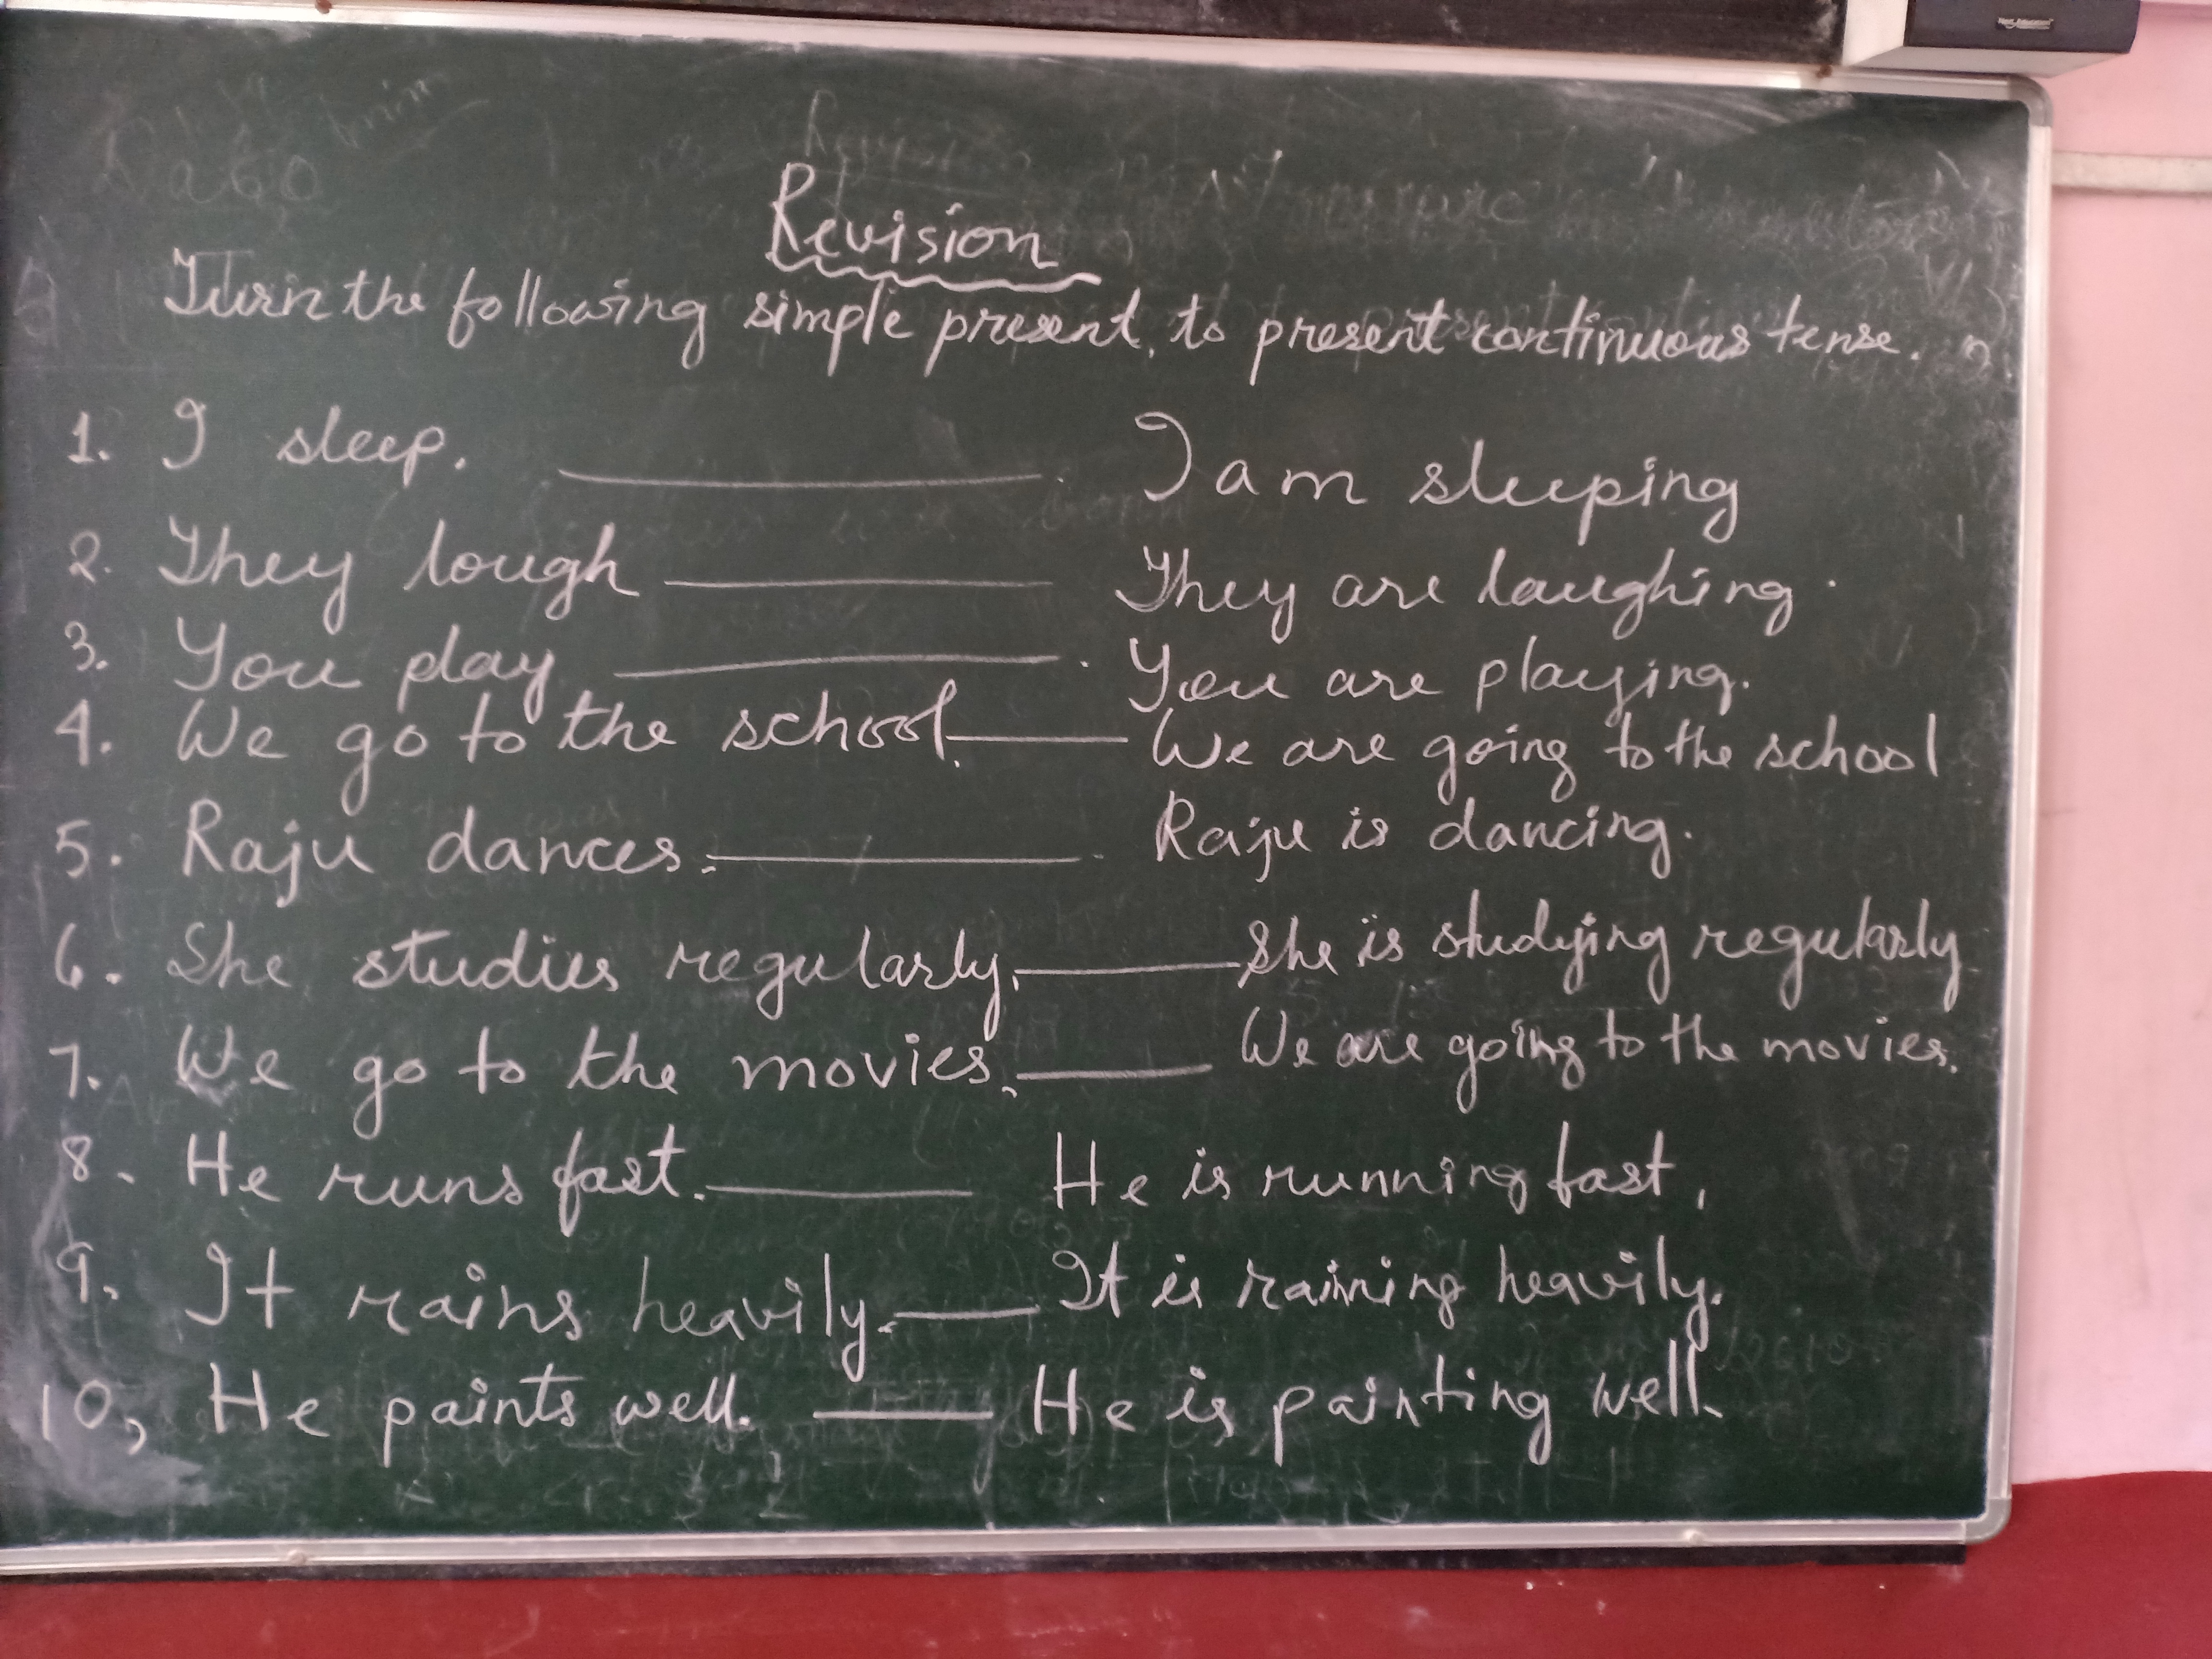 Next Education
Revision
Turn the following simple present, to present continuous tense.
1. I sleep. ________. I am sleeping
2. They lough ________ They are laughing.
3. You play ________. You are playing.
4. We go to the school. ________ We are going to the school
5. Raju dances. ________. Raju is dancing.
6. She studies regularly. ________ She is studying regularly
7. We go to the movies. ________ We are going to the movies.
8. He runs fast. ________ He is running fast,
9. It rains heavily. ________ It is raining heavily.
10, He paints well. ________ He is painting well.